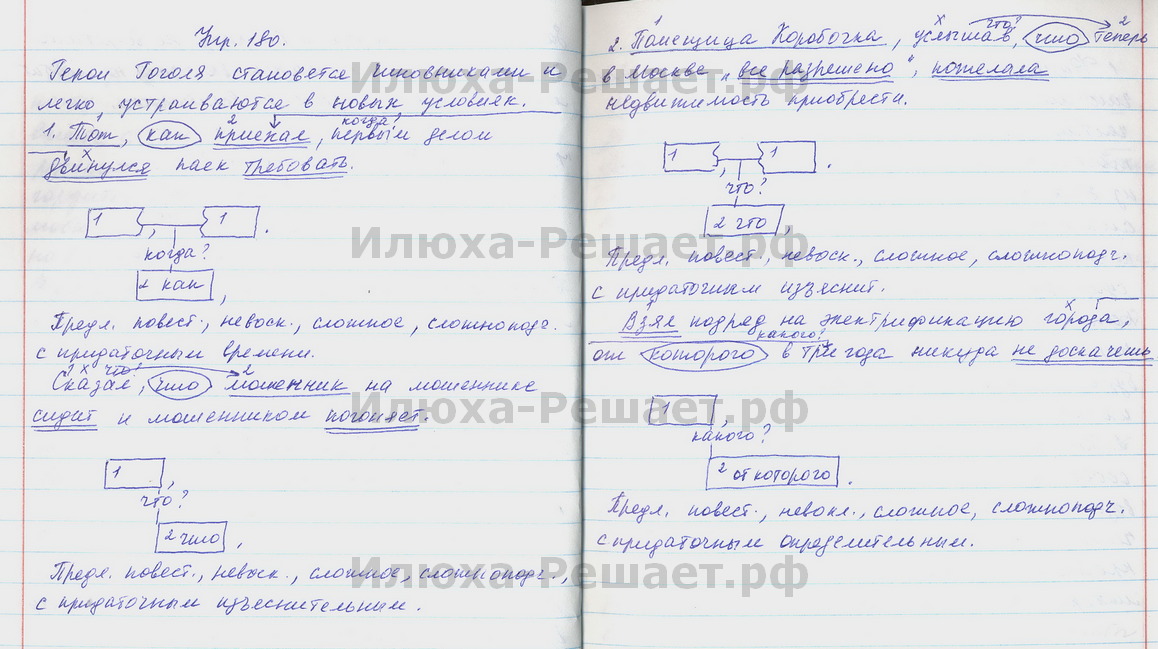 Упр. 180.
Герои Гоголя становятся чиновниками и
легко устраиваются в новых условиях.
2 когда?
1. Тот, как приехал, первым делом
1 х
двинулся паек требовать.
1 , 1 .
когда?
2 как ,
Предл. повест., невоск., сложное, сложноподч.
с придаточным времени.
1 х что? 2
Сказал, что мошенник на мошеннике
сидит и мошенником погоняет.
1 ,
что?
2 что ,
Предл. повест., невоск., сложное, сложноподч.,
с придаточным изъяснительным.
1 х что? 2
2. Помещица Коробочка, услышав, что теперь
в Москве „все разрешено", пожелала
недвижимость приобрести.
1 , 1 .
что?
2 что ,
Предл. повест., невоск., сложное, сложноподч.
с придаточным изъяснит.
1 х
Взял подряд на электрификацию города,
какого?
от которого в три года никуда не доскачешь
1 ,
какого?
2 от которого .
Предл. повест., невоскл., сложное, сложноподч.
с придаточным определительным.
Илюха-Решает.рф
Илюха-Решает.рф
Илюха-Решает.рф
Илюха-Решает.рф